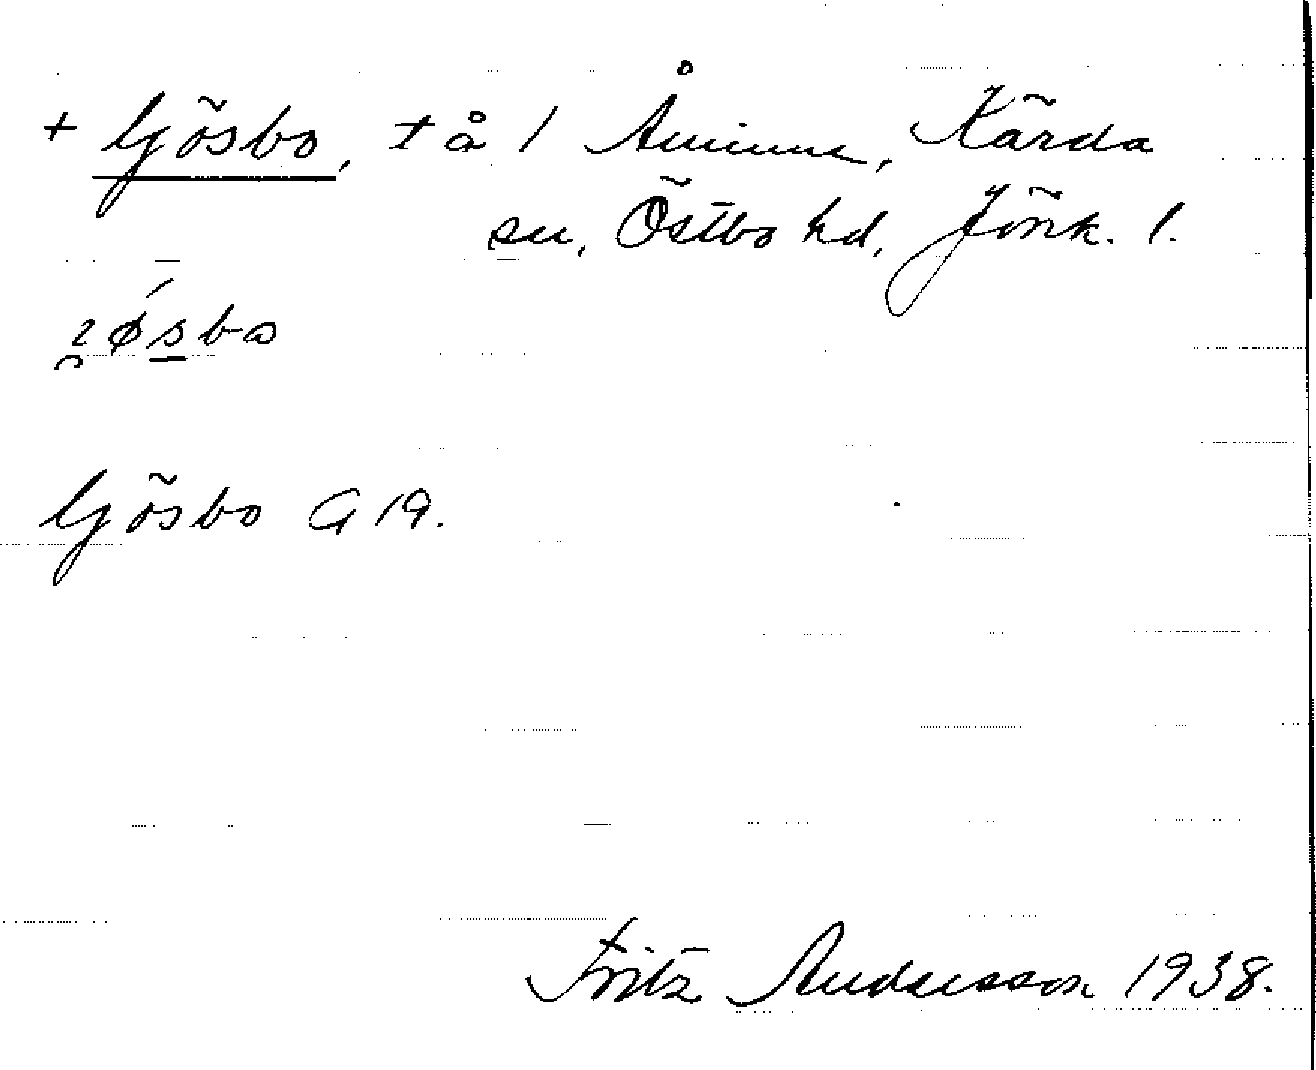 + Gjösbo, t å 1 Åminne, Kärda
sn, Östbo hd, Jönk. l.
Gjösbo G 19.
Fritz Andersson 1938.